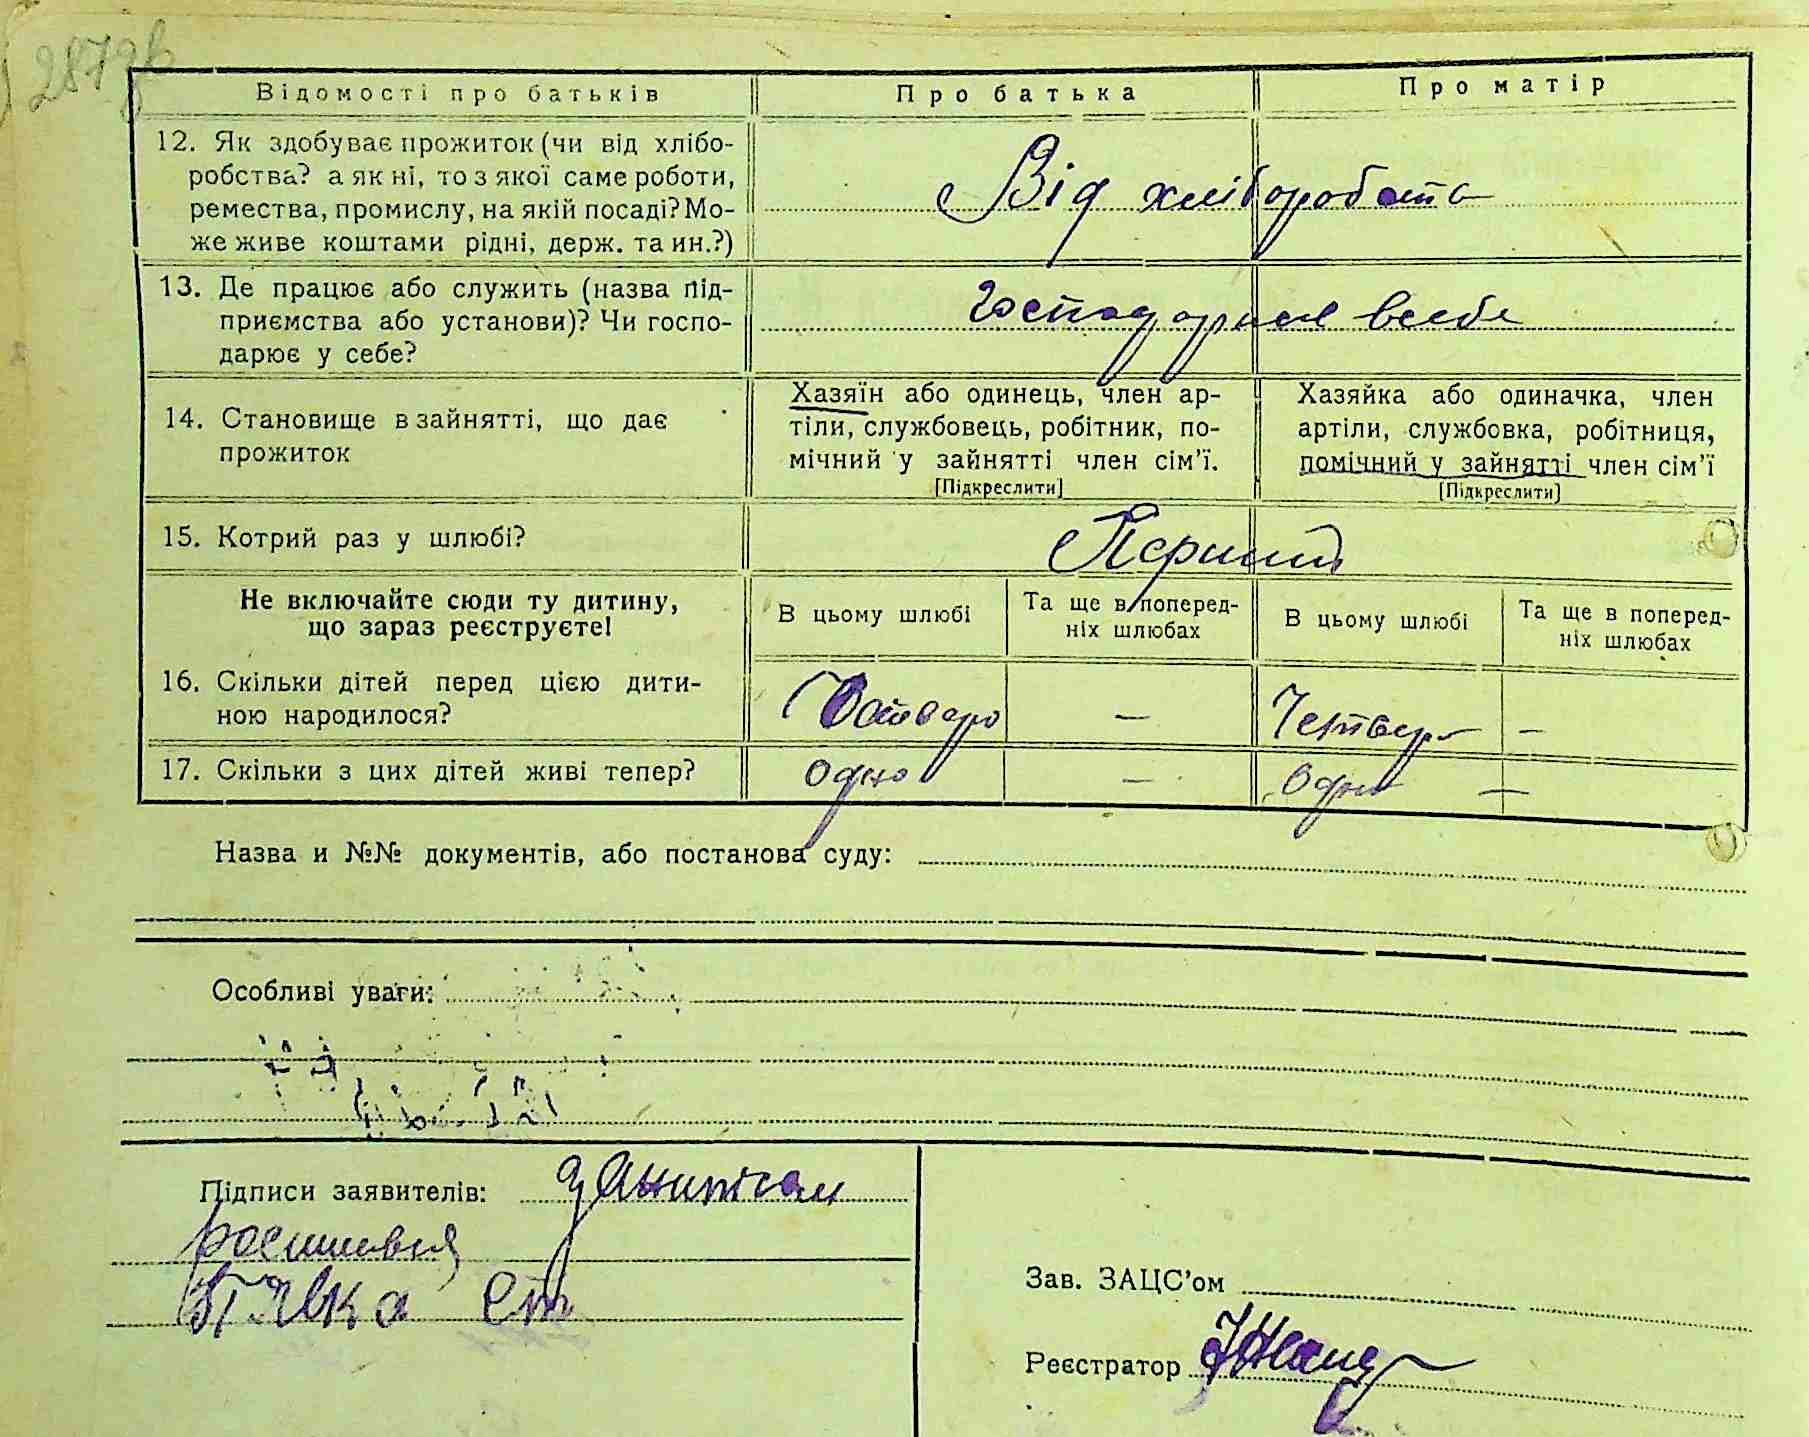 287зв
Відомості про батьків Про батька Про матір
12. Як здобуває прожиток (чи від хлібо-
робства? а як ні, то з якої саме роботи,
ремества, промислу, на якій посаді? Мо-
же живе коштами рідні, держ. та ин.?)
Від хліборобства
13. Де працює або служить (назва під-
приємства або установи)? Чи госпо-
дарює у себе?
14. Становище в зайнятті, що дає
прожиток
Хазяїн або одинець, член ар-
тіли, службовець, робітник, по-
мічний у зайнятті член сім'ї.
[Підкреслити]
Хазяйка або одиначка, член
артіли, службовка, робітниця,
помічний у зайнятті член сім'ї
[Підкреслити]
15. Котрий раз у шлюбі?
Перший
Не включайте сюди ту дитину,
що зараз реєструєте!
В цьому шлюбі
Та ще в поперед-
ніх шлюбах
В цьому шлюбі
Та ще в поперед-
ніх шлюбах
16. Скільки дітей перед цією дити-
ною народилося?
— Четверо —
17. Скільки з цих дітей живі тепер?
одно — одно —
Назва и №№ документів, або постанова суду:
Особливі уваги:
Підписи заявителів:
Зав. ЗАЦС'ом
Реєстратор